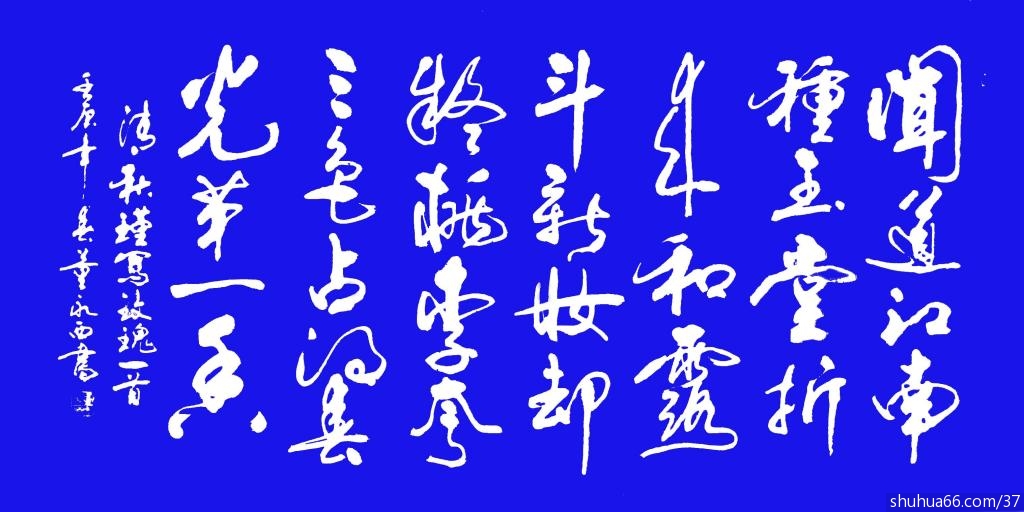 聞道江南
種玉堂折
来和露
斗新妝却
疑桃李夸
三色占得春
光第一香
清秋瑾寫玫瑰一首
壬辰年春董永西書
shuhua66.com/37